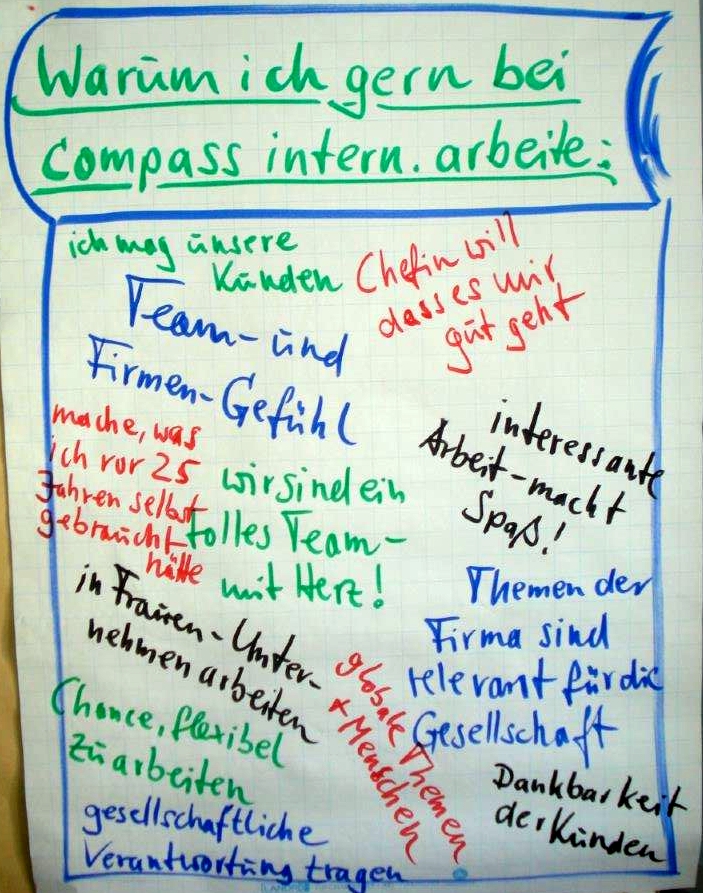 Warum ich gern bei
compass intern. arbeite:
ich mag unsere
Kunden
Chefin will
dass es mir
gut geht
Team- und
Firmen-Gefühl
interessante
Arbeit - macht
Spaß!
mache, was
ich vor 25
Jahren selbst
gebraucht
hätte
wir sind ein
tolles Team -
mit Herz!
Themen der
Firma sind
relevant für die
Gesellschaft
in Frauen-Unter-
nehmen arbeiten
globale Themen
+ Menschen
Chance, flexibel
zu arbeiten
Dankbarkeit
der Kunden
gesellschaftliche
Verantwortung tragen